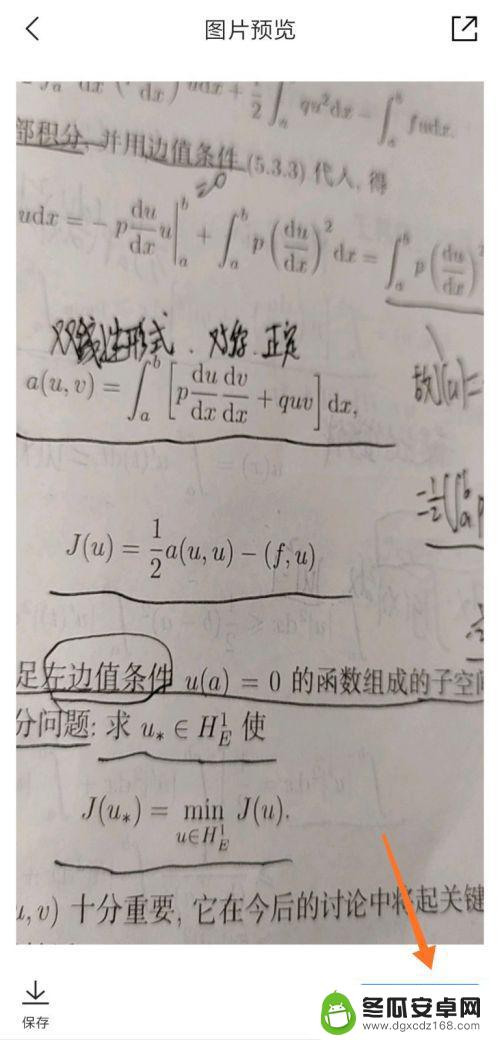 图片预览
du/dx) udx + 1/2 ∫_a^b qu²dx − ∫_a^b fudx.
部积分, 并用边值条件 (5.3.3) 代入, 得
=0
udx = − p du/dx u |_a^b + ∫_a^b p (du/dx)² dx = ∫_a^b p (du/dx)²
双线性形式、对称、正定
a(u, v) = ∫_a^b [p du/dx dv/dx + quv] dx,
故J(u)=
=1/2(∫_a^b p
J(u) = 1/2 a(u, u) − (f, u)
足左边值条件 u(a) = 0 的函数组成的子空间
分问题: 求 u_* ∈ H_E^1 使
J(u_*) = min_{u∈H_E^1} J(u).
u, v) 十分重要, 它在今后的讨论中将起关键
保存
冬瓜安卓网
www.dgxcdz168.com